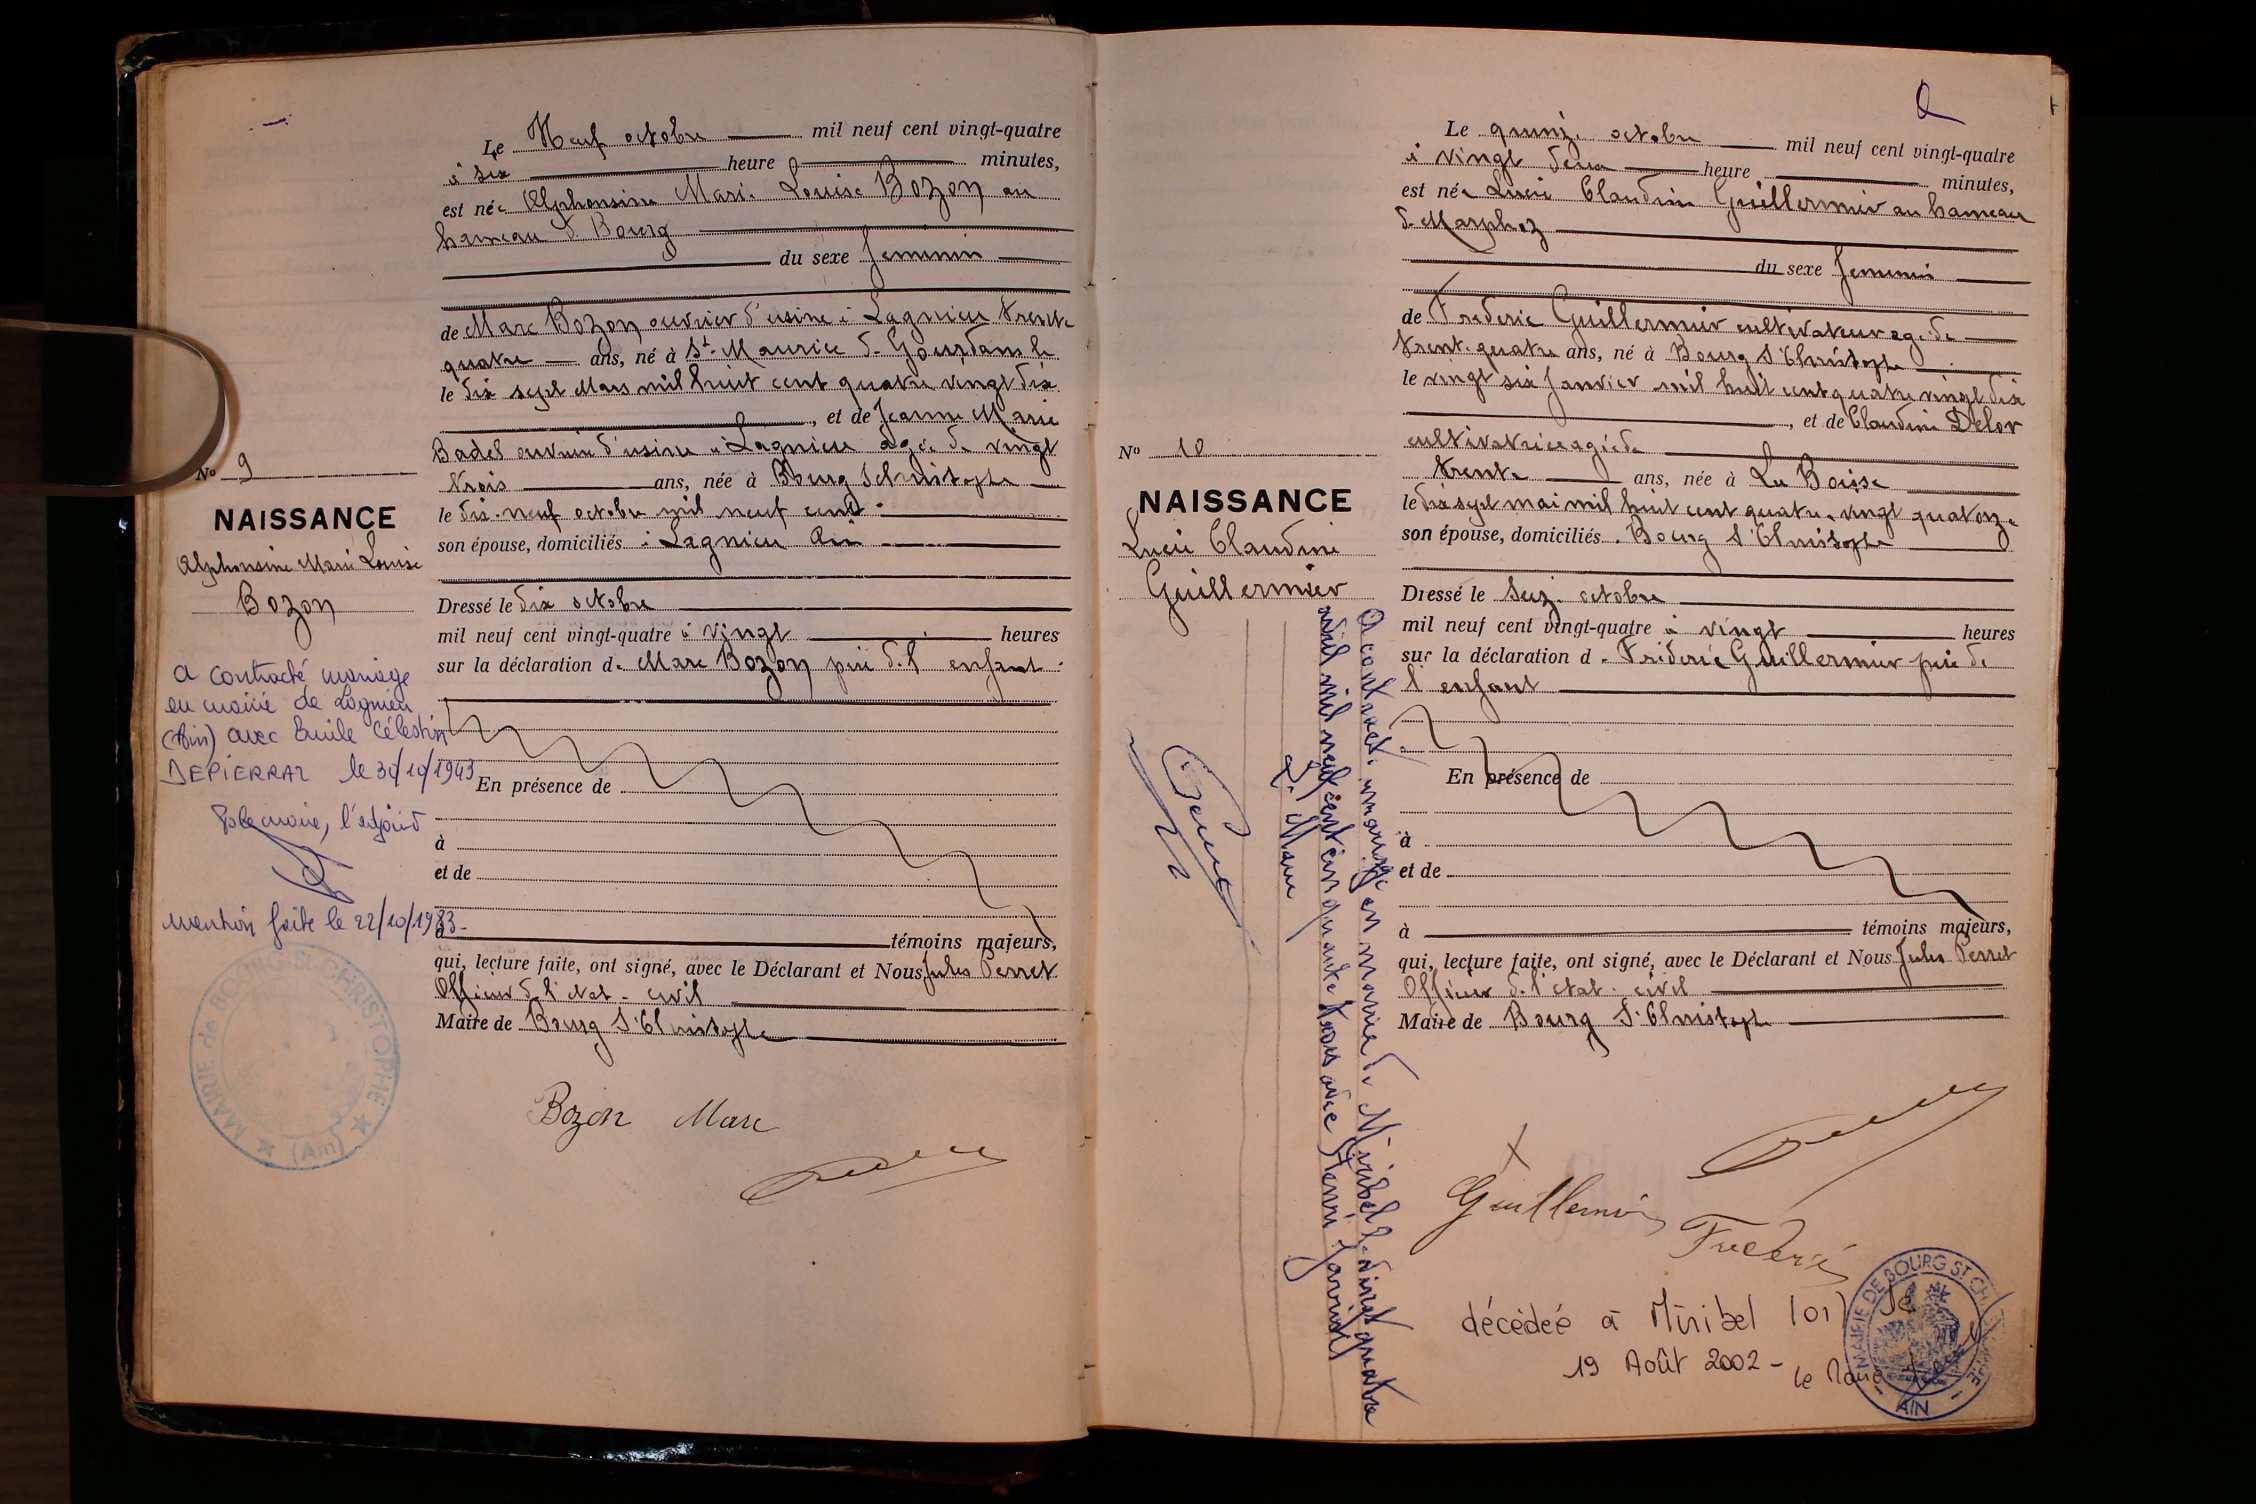 Le Neuf octobre mil neuf cent vingt-quatre
à six heure minutes,
est née Alphonsine Marie Louise Bozon au
hameau d. Bourg
du sexe féminin
de Marc Bozon ouvrier d'usine à Lagnieu trente
quatre ans, né à St. Maurice d. Gourdans le
le dix sept Mars mil huit cent quatre vingt dix
, et de Jeanne Marie
Badel ouvrière d'usine à Lagnieu agée de vingt
trois ans, née à Bourg St Christophe
le dix-neuf octobre mil neuf cent
son épouse, domiciliés à Lagnieu Ain
Dressé le dix octobre
mil neuf cent vingt-quatre à vingt heures
sur la déclaration d. Marc Bozon père de l'enfant
En présence de
à
et de
à témoins majeurs,
qui, lecture faite, ont signé, avec le Déclarant et Nous Jules Perret
Officier de l'état-civil
Maire de Bourg St Christophe
Bozon Marc
No 9
NAISSANCE
Alphonsine Marie Louise
Bozon
a contracté mariage
en mairie de Lagnieu
(Ain) avec Emile Célestin
DEPIERRAZ le 30/10/1943
le maire, l'adjoint
Mention faite le 22/10/1983-
MAIRIE de BOURG-St-CHRISTOPHE
(Ain)
Le quinze octobre mil neuf cent vingt-quatre
à vingt deux heure minutes,
est née Lucie Claudine Guillermier au hameau
de Marphoz
du sexe féminin
de Frederic Guillermier cultivateur agé de
trente-quatre ans, né à Bourg St Christophe
le vingt six Janvier mil huit cent quatre vingt dix
, et de Claudine Delor
cultivatrice agée de
trente ans, née à La Boisse
le dix sept mai mil huit cent quatre-vingt quatorze
son épouse, domiciliés à Bourg St Christophe
Dressé le seize octobre
mil neuf cent vingt-quatre à vingt heures
sur la déclaration d. Fréderic Guillermier père de
l'enfant
En présence de
à
et de
à témoins majeurs,
qui, lecture faite, ont signé, avec le Déclarant et Nous Jules Perret
Officier de l'état-civil
Maire de Bourg St Christophe
Guillermier Frederic
décédée à Miribel (01) le
19 Août 2002-
le Maire
MAIRIE DE BOURG ST CHRISTOPHE
AIN
No 10
NAISSANCE
Lucie Claudine
Guillermier
A contracté mariage en mairie de Miribel le vingt quatre
avril mil neuf cent cinquante trois avec Henri
Le Maire
Perret